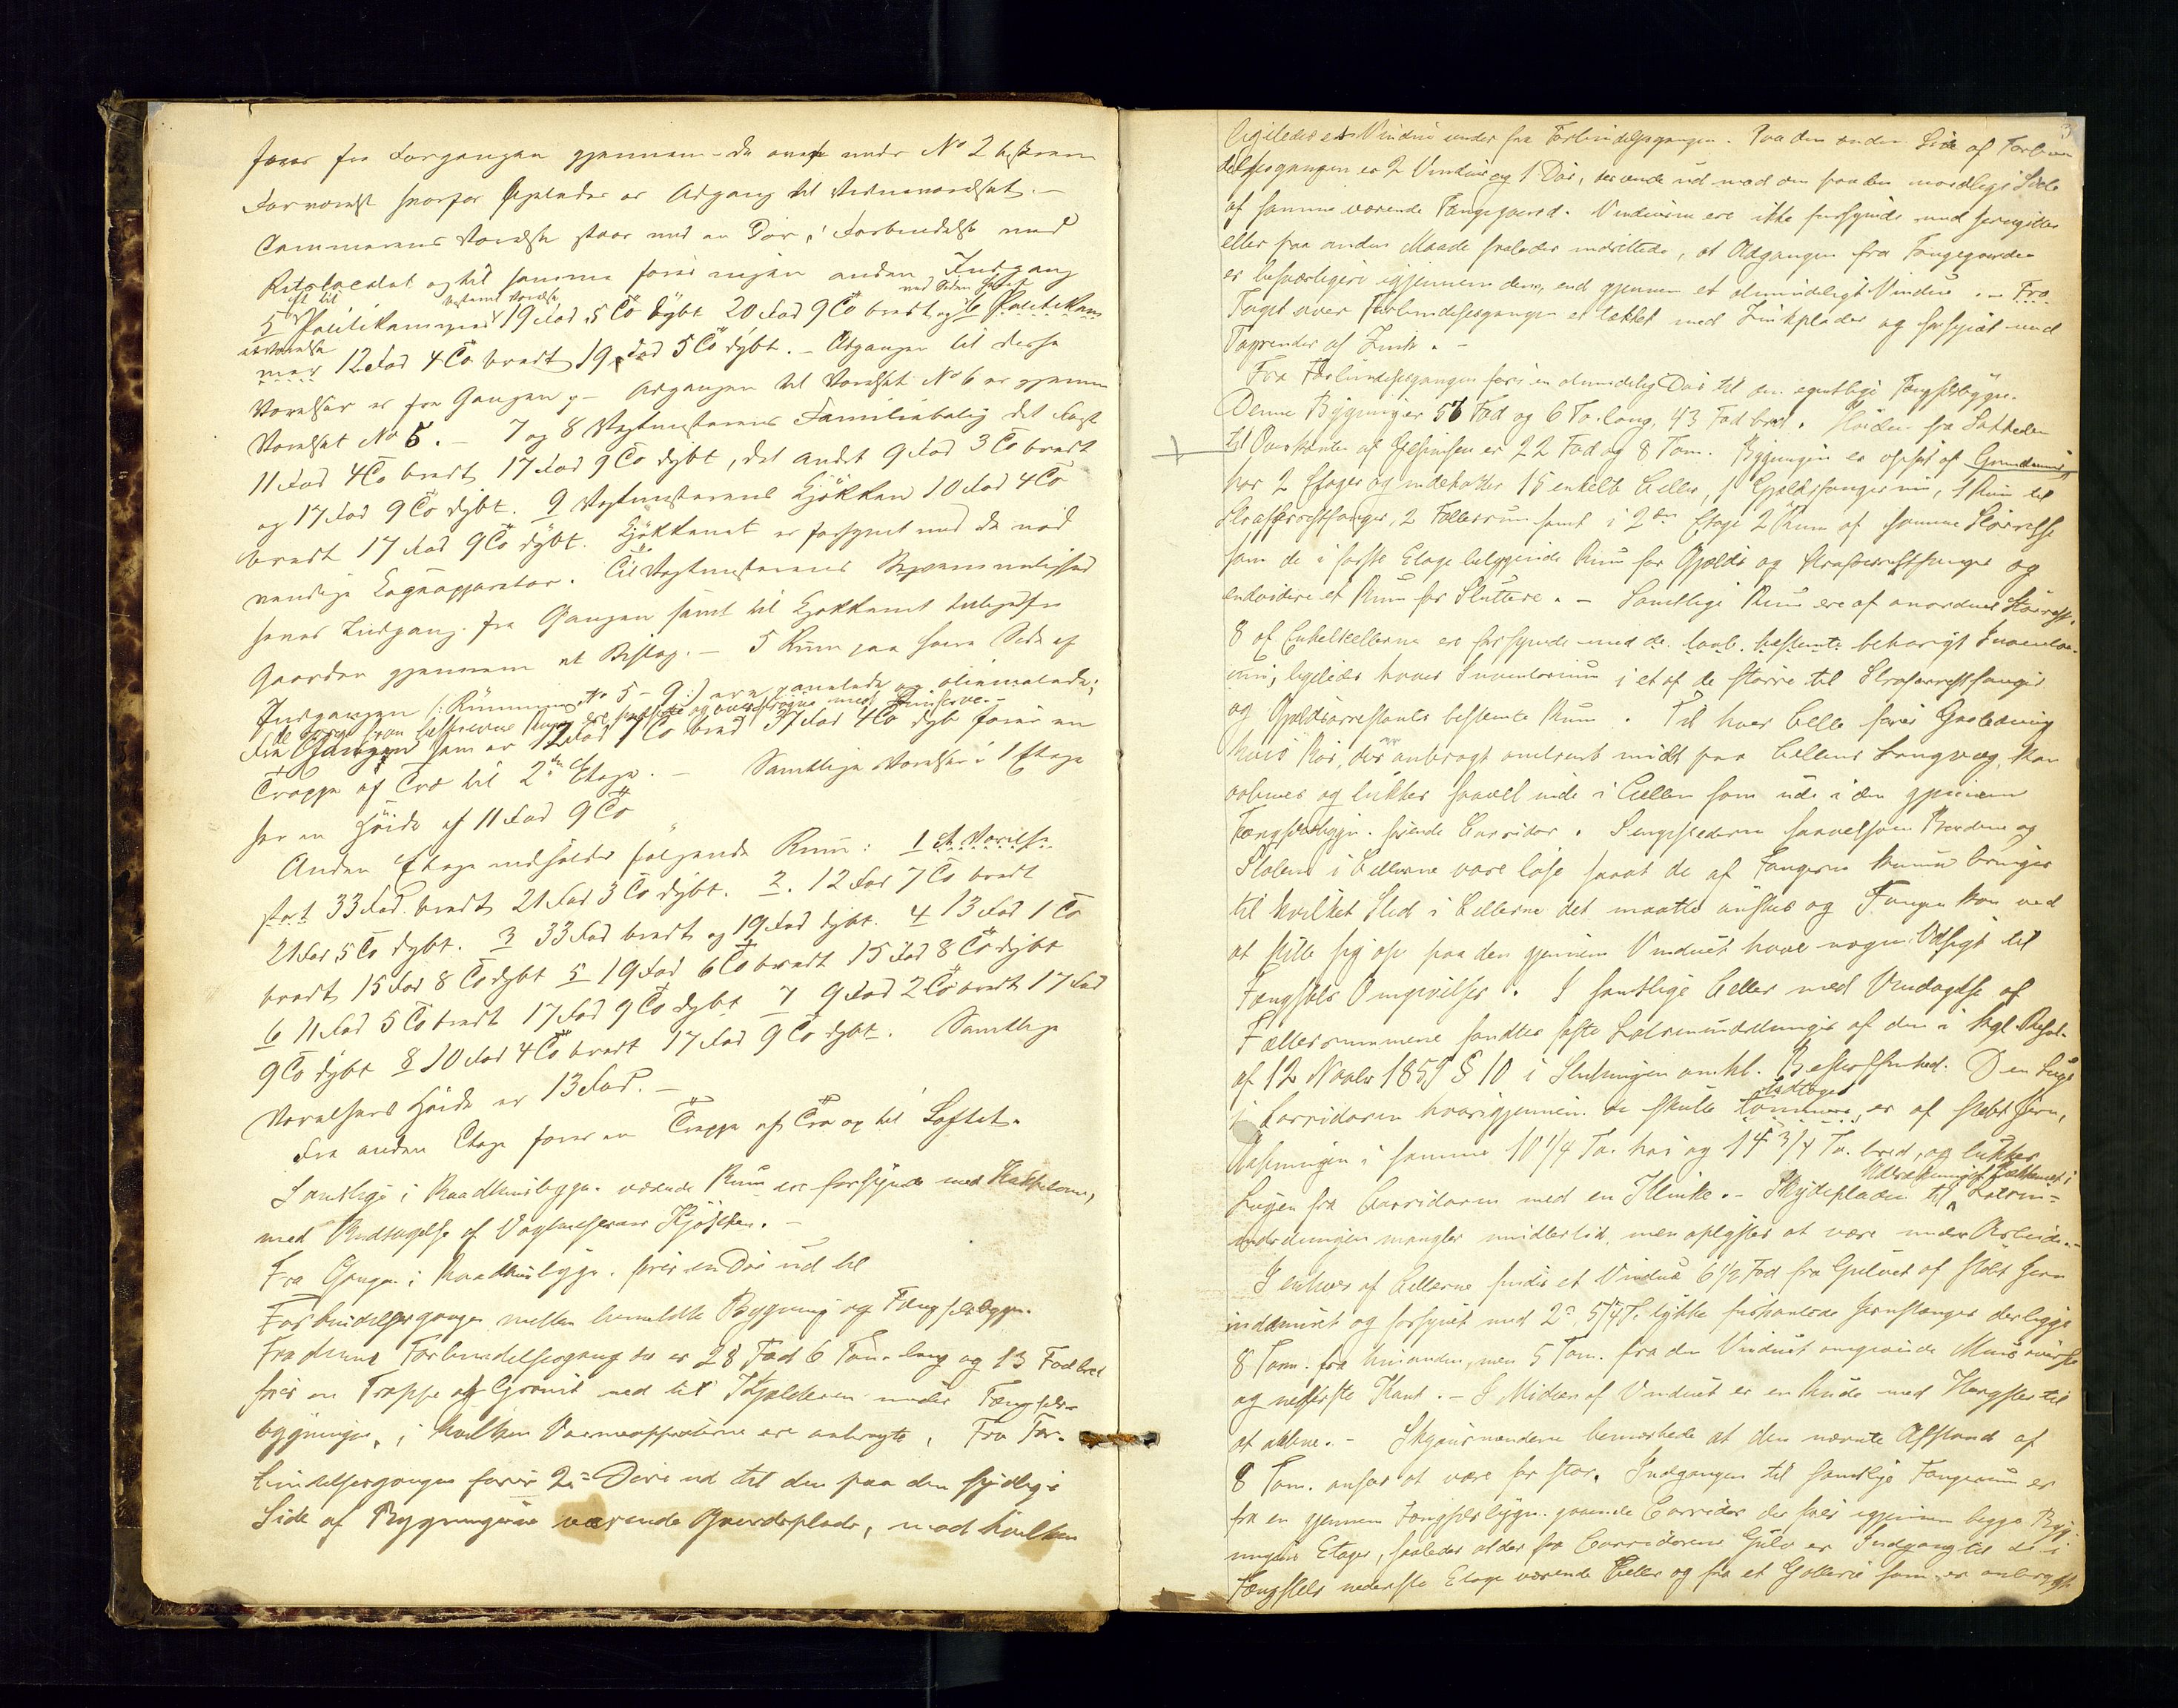 fører fra Forgangen gjennem de ovenfor under No 2 beskrevne
Forværelse hvorfor ligeledes er Adgang til Vidneværelset. -
Cammerens Værelse staar ved en Dör i Forbindelse med
Retslocalet og til samme fører ingen anden Indgang
5 Politikammeret 19 Fod 5 To dybt 20 Fod 9 To bredt og 6 Politikam
mer 12 Fod 4 To bredt, 19 Fod 5 To dybt. - Adgangen til disse
Værelser er fra Gangen, - Adgangen til Værelset No 6 er gjennem
Værelset No 5. - 7 og 8 Vagtmesterens Familiebolig det første
11 Fod 4 To bredt 17 Fod 9 To dybt, det andet 9 Fod 3 To bredt
og 17 Fod 9 To dybt. 9 Vagtmesterens Kjökken 10 Fod 4 To
bredt 17 Fod 9 To dybt. Kjökkenet er forsynet med de nød
vendige Kogeapparater. Til Vagtmesterens
haves Indgang fra Gangen samt til Kjøkkenet tillige fra
Gaarden gjennem et Bislag. - 5 Rum paa høire Side af
Indgangen (: Rummene No 5 - 9 :) ere panelede og oliemalede;
Fra Gangen som er 12 Fod 1 To bred 37 Fod 4 To dyb fører en
Trappe af Træ til 2den Etage. - Samtlige Værelser i 1 Etage
har en Høide af 11 Fod 9 To
Anden Etage indholder følgende Rum: 1 et Værelse
stort 33 Fod bredt 21 Fod 3 To dybt. 2. 12 Fod 7 To bredt
21 Fod 5 To dybt. 3 33 Fod bredt og 19 Fod dybt. 4 13 Fod 1 To
bredt 15 Fod 8 To dybt 5 19 Fod 6 To bredt 15 Fod 8 To dybt
6 11 Fod 5 To bredt 17 Fod 9 To dybt 7 9 Fod 2 To bredt 17 Fod
9 To dybt 8 10 Fod 4 To bredt 17 Fod 9 To dybt. Samtlige
Værelsers Høide er 13 Fod. -
Fra anden Etage fører en Trappe af Træ op til Loftet.
Samtlige i Raadhusbygn. værende Rum ere forsynede med Kakkelovn,
med Undtagelse af Vagtmesterens Kjøkken. -
Fra Gangen i Raadhusbygn. fører en Dør ud til
Forbindelsesgangen mellem bemeldte Bygning og Fængselsbygn.
Fra denne Forbindelsesgang der er 28 Fod 6 Tom. lang og 13 Fod bred
fører en Trappe af Granit ned til Kjælderen under Fængsels-
bygningen, i hvilken Varmeapparaterne ere anbragte. Fra For-
bindelsesgangen fører 2de Døre ud til den paa den sydlige
Side af Bygningerne værende Gaardsplads, mod hvilken
ligeledes et Vindue vender fra Forbindelsesgangen. Paa den anden Side af Forbin
delsesgangen er 2 Vinduer og 1 Dør, der vende ud mod den paa den nordlige Side
af samme værende Fangegaard. Vinduerne ere ikke forsynede med Jerngitter
eller paa anden Maade saaledes indrettede, at Adgangen fra Fangegaarden
er besværligere igjennem dem, end gjennem et almindeligt Vindue. -
Taget over Forbindelsesgangen er tækket med Zinkplader og forsynet med
Tagrender af Zink. -
Fra Forbindelsesgangen fører en almindelig Dør til den egentlige Fængselsbygn.
Denne Bygning er 56 Fod og 6 To. lang, 43 Fod bred. Høiden fra Sokkelen
til Overkanten af Gesimsen er 22 Fod og 8 Tom. Bygningen er opført af Grundmur,
har 2 Etager og indeholder 15 enkelte Celler, 1 Gjældsfangerum, 1 Rum til
Strafarrestfanger, 2 Fællesrum samt i 2den Etage 2 Rum af samme Størrelse
som de i første Etage beliggende Rum for Gjælds og Strafarrestfanger og
endvidere et Rum for Sluttere. - Samtlige Rum ere af anordnet Størrelse,
8 af Enkeltcellerne ere forsynede med de lovb. bestemte behørigt Inventa-
rium, ligeledes haves Inventarium i et af de større til Strafarrestfanger
og Gjældsarrestanter bestemte Rum. Til hver Celle fører Gasledning
hvis Rør, der er anbragt omtrent midt paa Cellens Langvæg, kan
aabnes og lukkes saavel inde i Cellen som ude i den gjennem
Fængselsbygn. førende Corridor. Sengestederne saavelsom Bordene og
Stolene i Cellerne vare løse saaat de af Fangerne kunne bringes
til hvilket Sted i Cellerne det maatte ønskes og Fangen kan ved
at stille sig op paa den gjennem Vinduet have nogen Udsigt til
Fængslets Omgivelser. I samtlige Celler med Undtagelse af
Fællesrummene fandtes faste Latrinindretninger af den i kgl. Resol.
af 12 Novbr 1859 § 10 i Slutningen omhl. Beskaffenhed. Den Luge
i Corridoren hvorigjennem de skulle udtages, er af støbt Jern,
Aabningen i samme 10 1/4 To. høi og 14 3/4 To. bred, og lukkes
Lugen fra Corridoren med en Klinke. - Skydepladen til Latrin-
indretningen mangler imidlertid, men oplystes at være under Arbeide. -
I enhver af Cellerne findes et Vindue 6 1/2 Fod fra Gulvet af støbt Jern
indmuret og forsynet med 2de 5/4 T. tykke firkantede Jernstænger der ligge
8 Tom. fra hinanden, men 5 Tom. fra den Vinduet omgivende Muurs øverste
og nederste Kant. - I Midten af Vinduet er en Rude med Hængsler til
at aabne. - Skjønsmændene bemærkede at den nævnte Afstand af
8 Tom. ansaaes at være for stor. Indgangen til samtlige Fangerum er
fra en gjennem Fængselsbygn. gaaende Corridor der fører igjennem begge Byg-
ningens Etager, saaledes at der fra Corridorens Gulv er Indgang til de i
Fængslets nederste Etage værende Celler og fra et Galleri som er anbragt